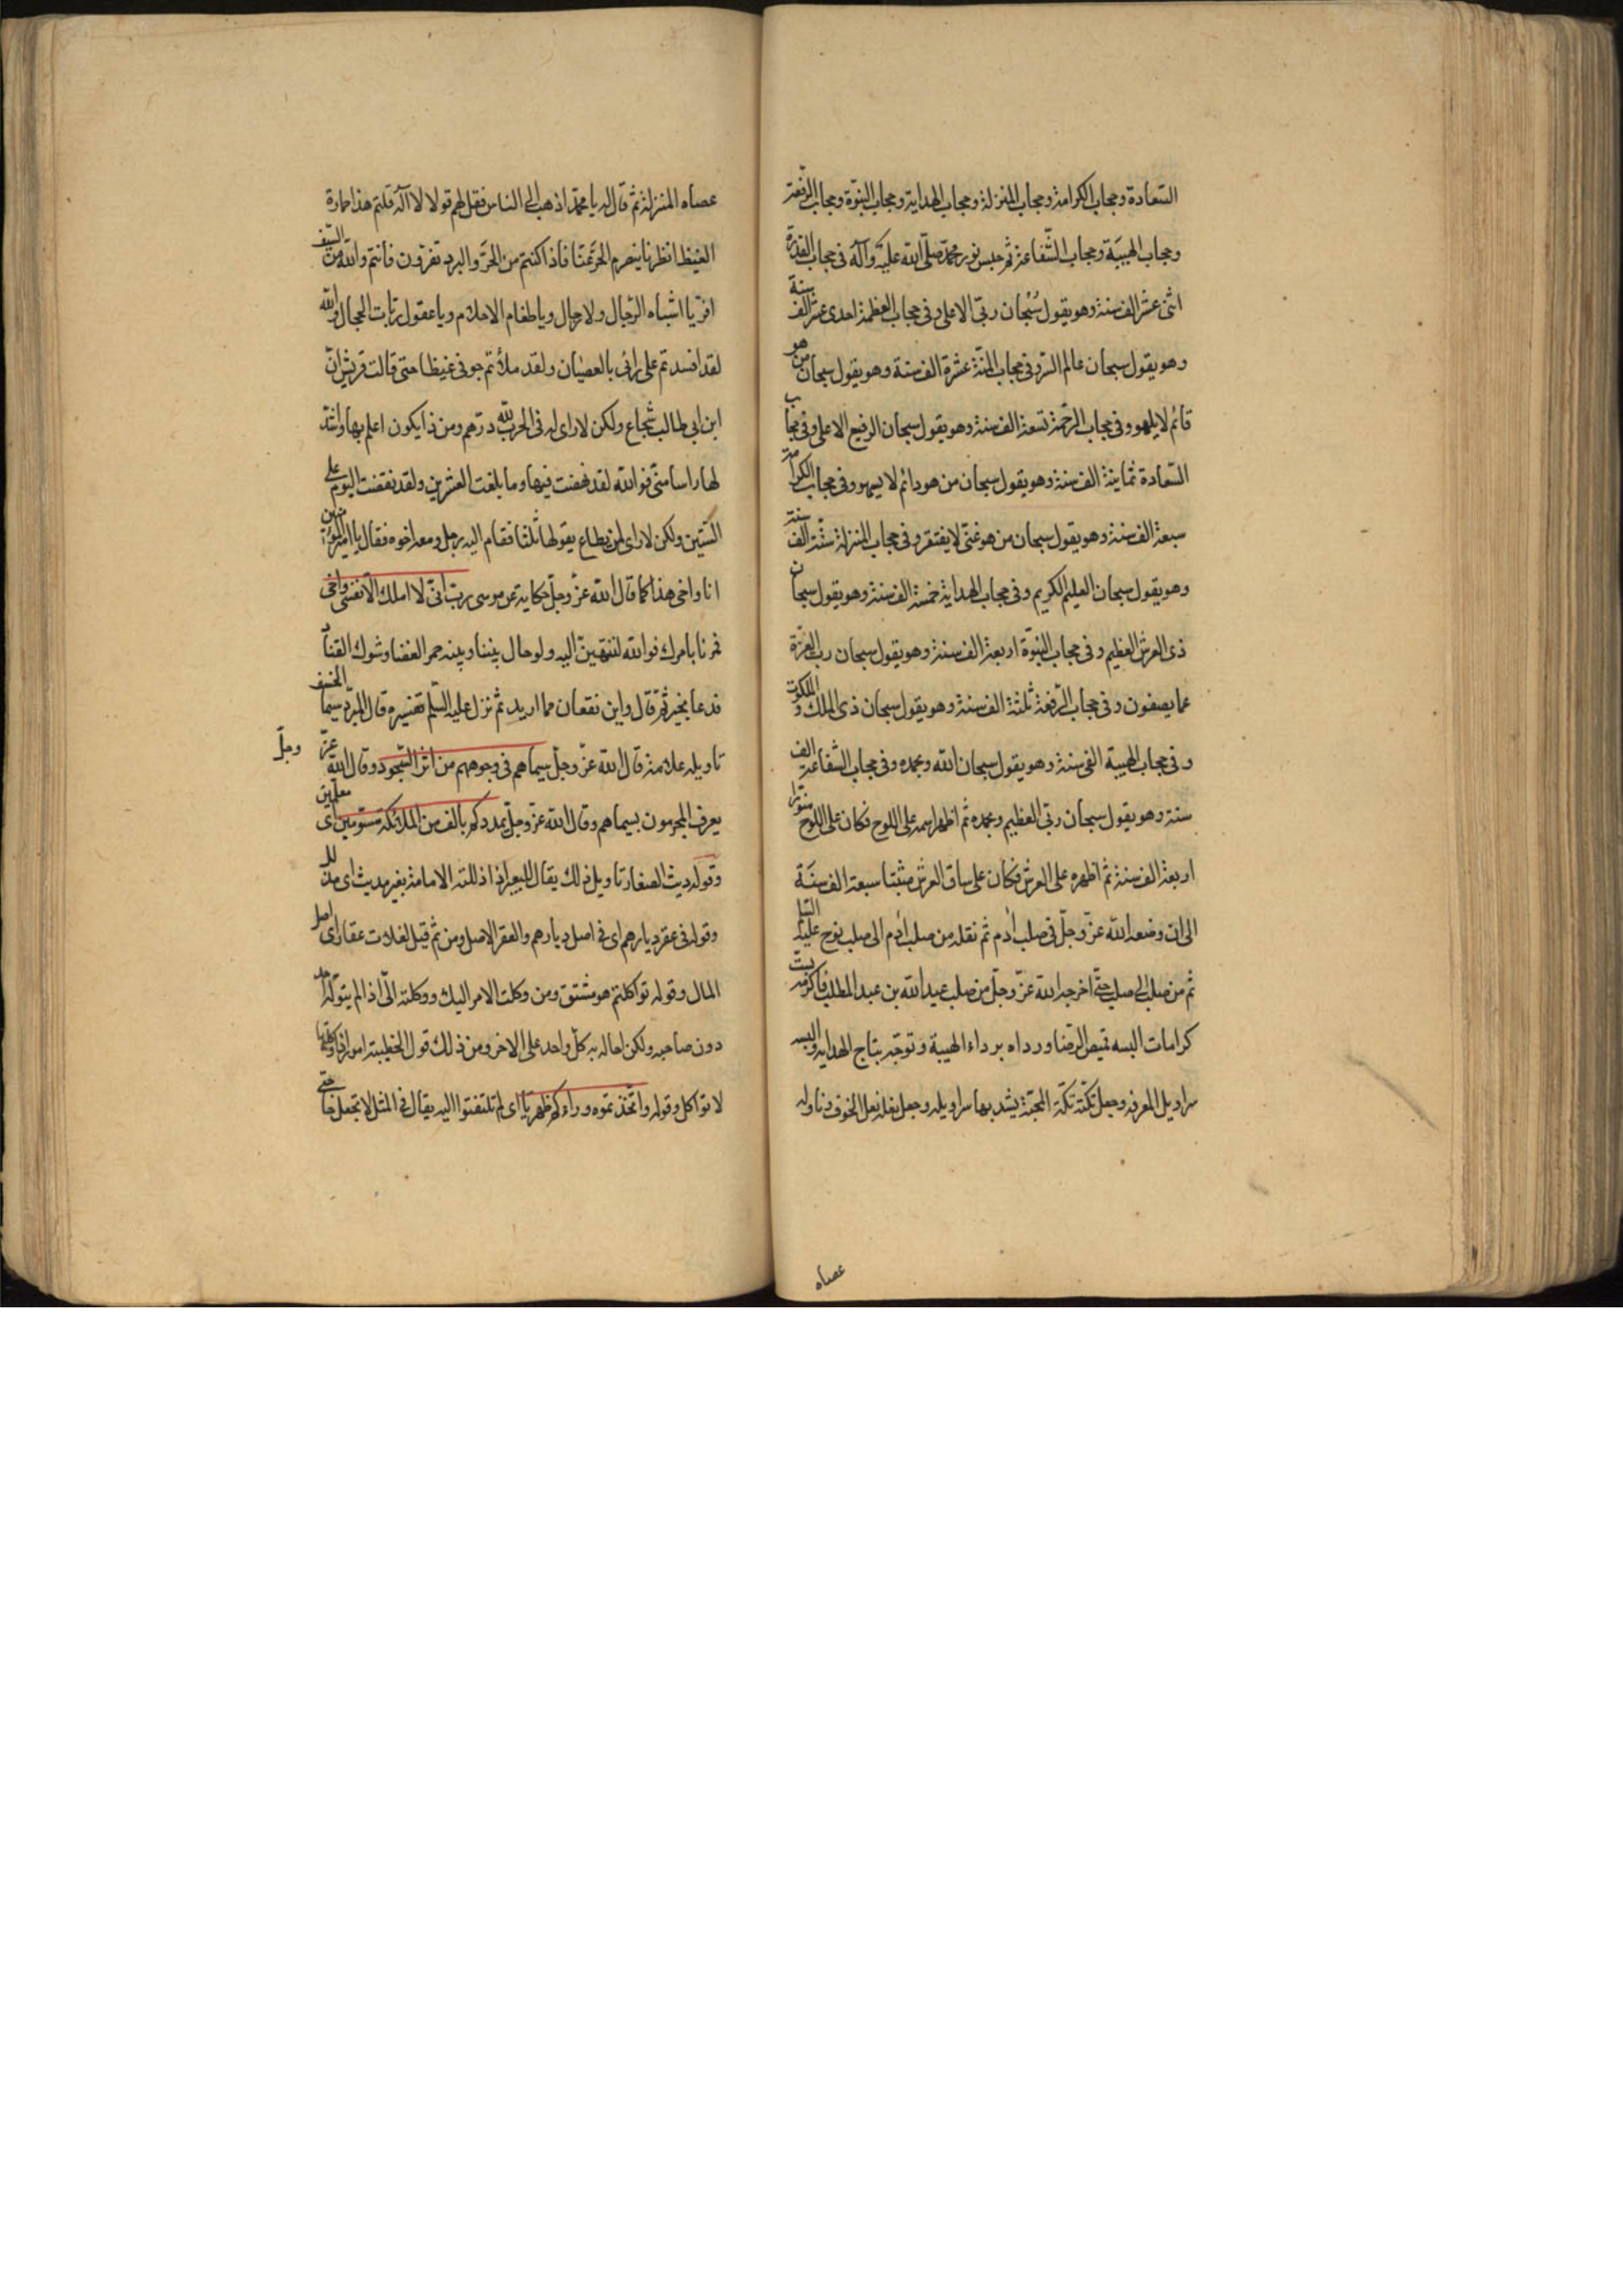 السّعادة وحجاب الكرامة وحجاب المنزلة وحجاب الهداية وحجاب النبوّة وحجاب الرّفعة
وحجاب الهيبَة وحجاب الشّفاعة ثم حبس نور محمّد صلّى الله عليه وآله في حجاب القدرة
اثنى عشر الف سنة وهو يقول سُبْحان ربّى الاعلى وفى حجاب العظمة احدى عشر الف سنة
وهو يقول سبحان عالم السّر وفى حجاب المنّة عشرة الف سنة وهو يقول سبحان من هو
قائم لا يلهو وفى حجاب الرّحمة تسعة الف سنة وهو يقول سبحان الرفيع الاعلى وفى حجاب
السّعادة ثمانية الف سنة وهو يقول سبحان من هو دائم لا يسهو وفى حجاب الكرامة
سبعة الف سنة وهو يقول سبحان من هو غنىّ لا يفتقر وفى حجاب المنزلة ستّة الف سنة
وهو يقول سبحان العليم الكريم وفى حجاب الهداية خمسة الف سنة وهو يقول سبحان
ذى العرش العظيم وفى حجاب النبوّة اربعة الف سنة وهو يقول سبحان ربّ العزّة
عما يصفون وفى حجاب الرّفعة ثلثة الف سنة وهو يقول سبحان ذى الملك والملكوت
وفى حجاب الهيبة الفى سنة وهو يقول سبحان الله وبحمده وفى حجاب الشّفاعة الف
سنة وهو يقول سبحان ربّى العظيم وبحمده ثم اظهر اسمه على اللوح فكان على اللوح منوّرا
اربعة الف سنة ثم اظهره على العرش فكان على ساق العرش مثبتا سبعة الف سنَة
الى ان وضعه الله عزّ وجلّ فى صلب آدم ثم نقله من صلب آدم الى صلب نوح عليه السّلم
ثم من صلب الى صلب حتّى اخرجه الله عزّ وجلّ من صلب عبد الله بن عبد المطلب فاكرمه بستّ
كرامات البسه قميص الرضا وردّاه برداء الهيبة وتوجّه بتاج الهداية والبسه
سراويل المعرفة وجعل تكّته تكّة المحبّة يشد بها سراويله وجعل نعله نعل الخوف وناوله
عصاه
عصاه المنزلة ثم قال له يا محمّد اذهب الى الناس فقل لهم قولا لا اله قلتم هذا حمارة
الغيظ انظرنا ينصرم الحرّ عنّا فاذا كنتم من الحرّ والبرد تفرّون فانتم والله من السّيف
افرّ يا اشباه الرّجال ولا رجال ويا طغام الاحلام ويا عقول ربّات الحجال والله
لقد افسدتم على رائى بالعصيٰان ولقد ملأتم جوفى غيظا حتى قالت قريش انّ
ابن ابى طالب شجاع ولكن لا راى له فى الحرب لله درّهم ومن ذا يكون اعلم بها واشدّ
لها راسا منّى فوالله لقد نهضت فيها وما بلغت العشرين ولقد نقضت اليوم على
السّتّين ولكن لا راى لمن يطاع يقولها ثلثا فقام اليه رجل ومعه اخوه فقال يا امير المؤمنين
انا واخى هذا كما قال الله عزّ وجلّ حكاية عن موسى ربّ انّى لا املك الّا نفسى واخى
فمرنا بامرك فوالله لننتهينّ اليه ولو حال بيننا وبينه جمر الغضا وشوك القتاد
فدعا بخير ثم قال واين تقعان مما اريد ثم نزل عليه السّلم تفسيره قال المبرّد سيما الخسف
تاويله علامة قال الله عزّ وجلّ سيماهم فى وجوههم من اثر السّجود وقال الله عزّ وجلّ
يعرف المجرمون بسيماهم وقال الله عزّ وجلّ يمددكم بالف من الملائكة مسوّمين اى معلمين
وقوله ديث الصغار تاويل ذلك يقال للبعير اذا ذللته الامامة بعير مديث اى مذلل
وقوله فى عقر ديارهم اى فى اصل ديارهم والعقر الاصل ومن ثم قيل لفلان عقار اى اصل
المال وقوله تواكلتم هو مشتق من وكلت الامر اليك ووكلته الىّ اذا لم يتولّه احد
دون صاحبه ولكن احاله به كلّ واحد على الاخر ومن ذلك قول الحطيئة امور اذا واكلتها
لا تواكل وقوله واتّخذتموه وراءكم ظهريّا اى لم تلتفتوا اليه يقال فى المثل لا تجعل حاجتى